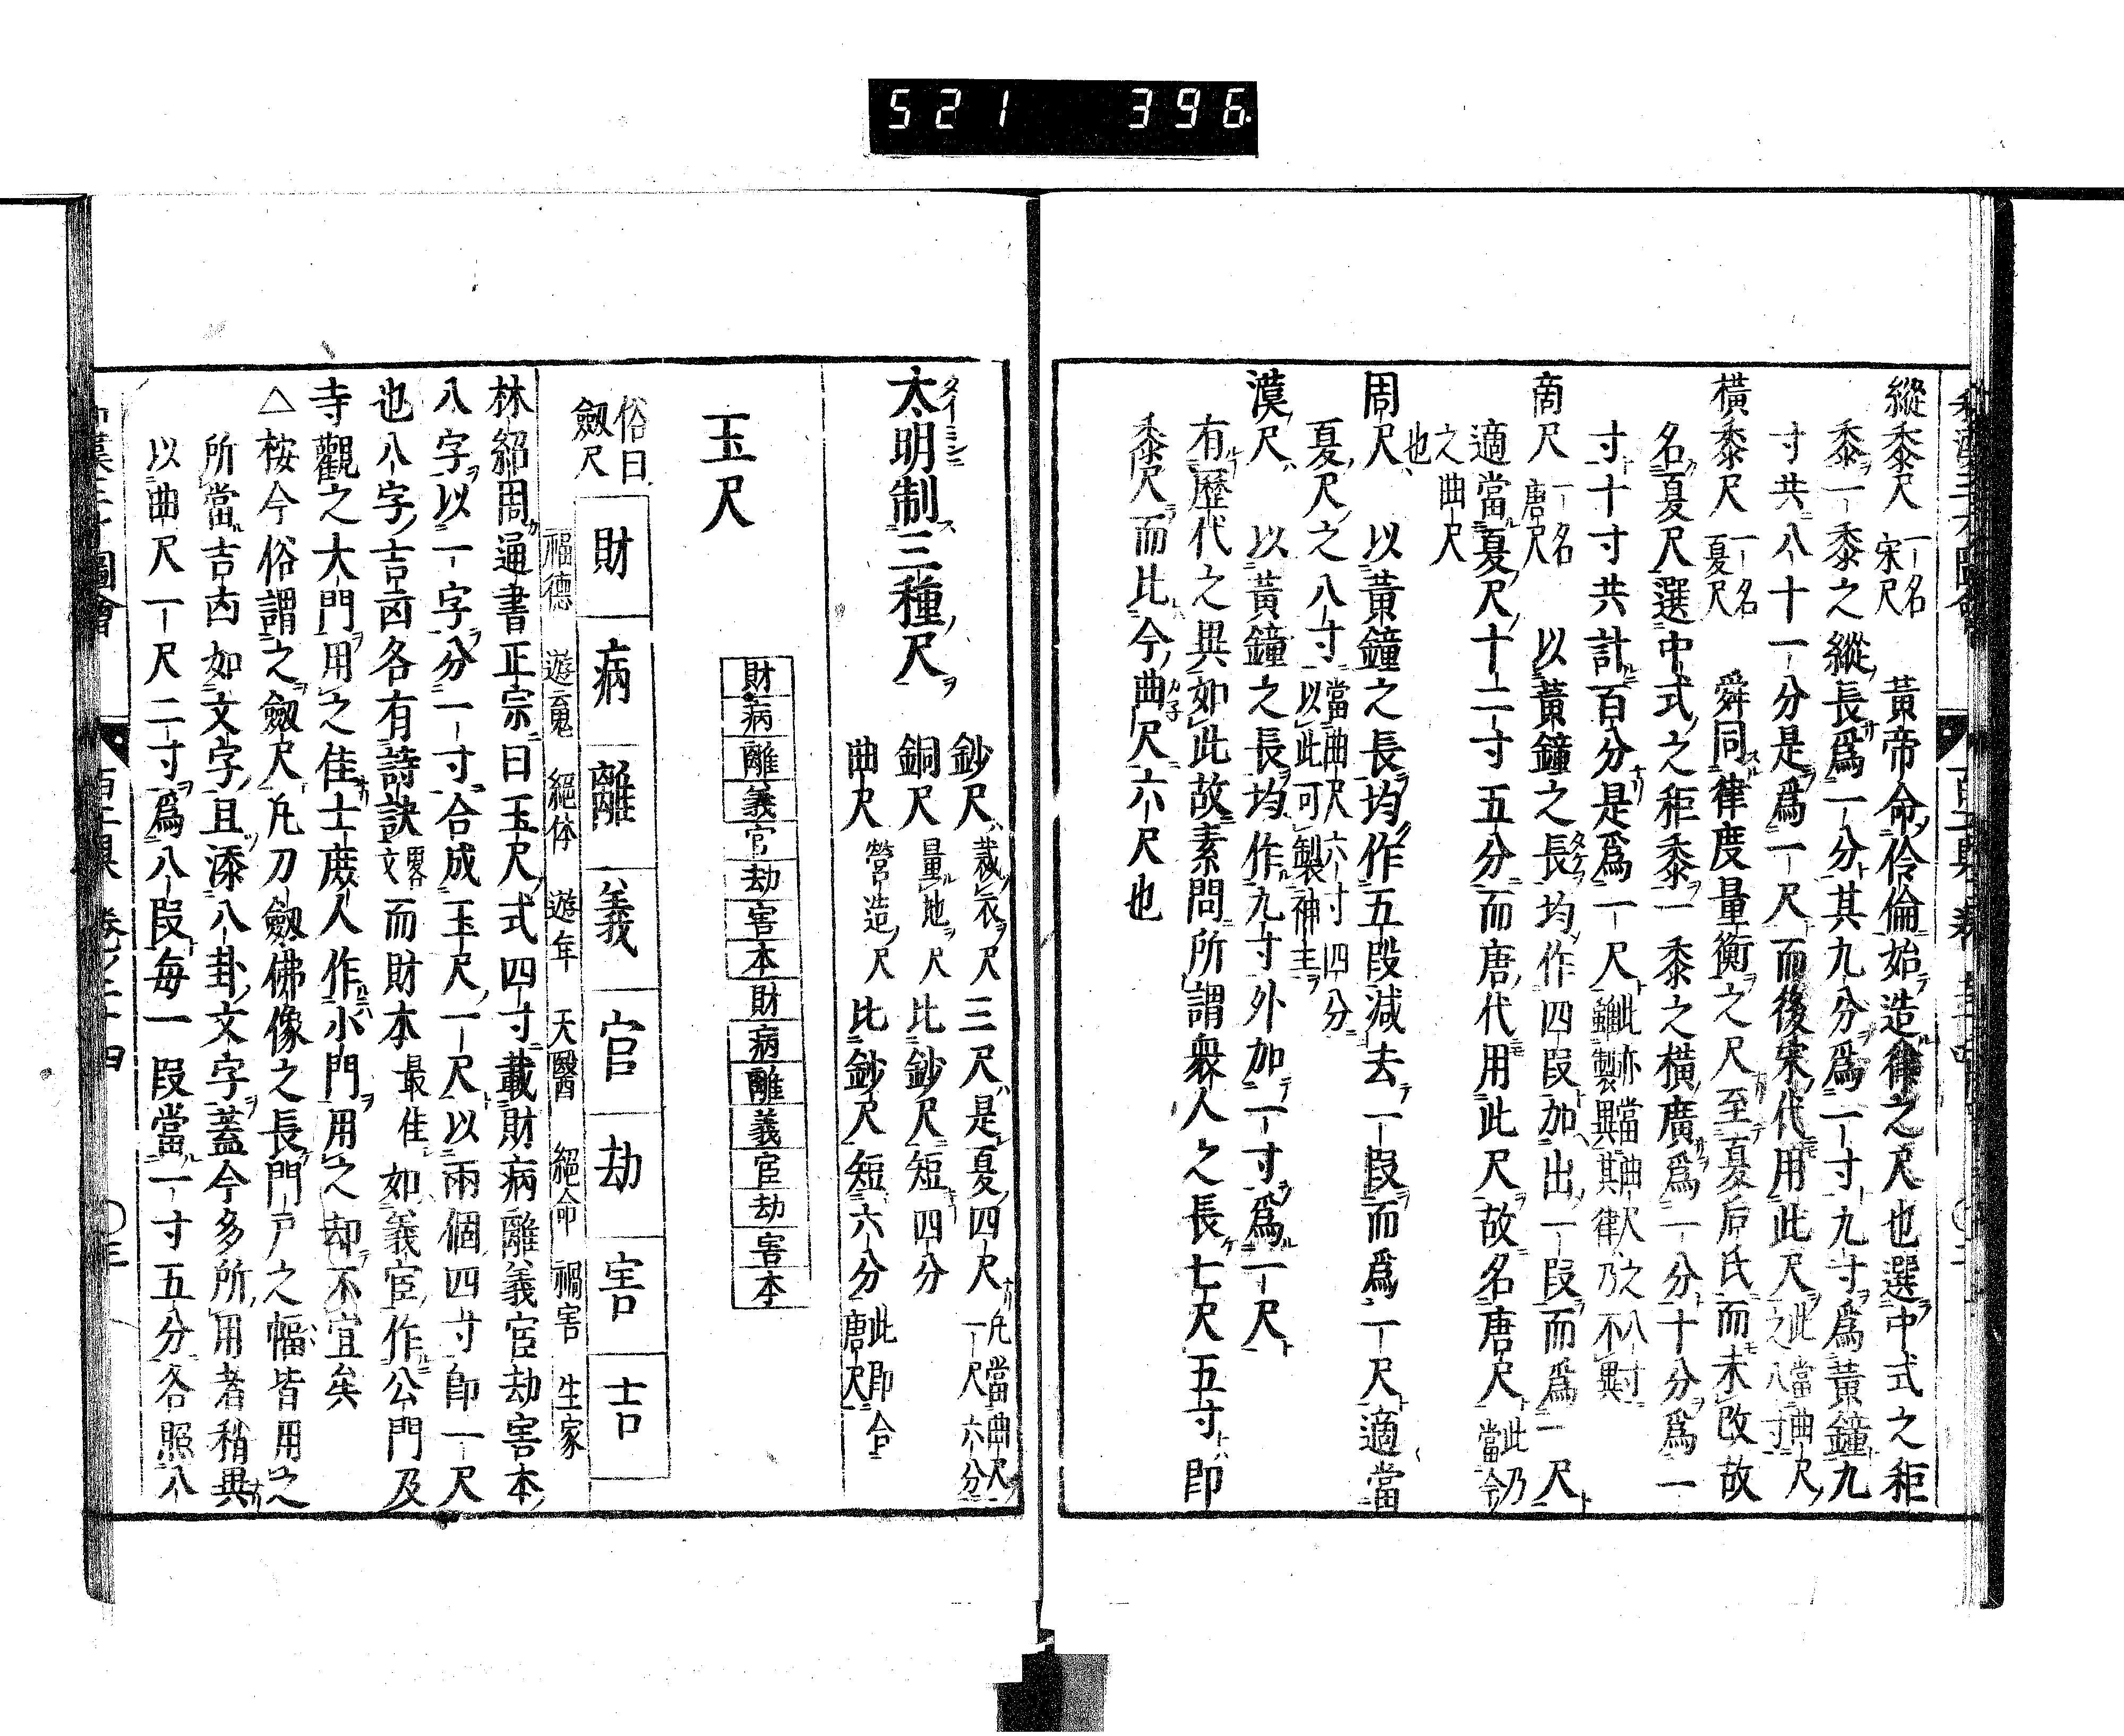 521 396
縱黍尺 一名宋尺 黃帝命伶倫始造律之尺也選中式之秬
黍一黍之縱長爲一分其九分爲一寸九寸爲黃鐘九
寸共八十一分是爲一尺而後宋代用此尺 此當曲尺之八寸
橫黍尺 一名夏尺 舜同律度量衡之尺至夏后氏而未改故
名夏尺選中式之秬黍一黍之橫廣爲一分十分爲一
寸十寸共計百分是爲一尺 此亦當曲尺之八寸雖製異其律乃不異
商尺 一名唐尺 以黃鐘之長均作四段加出一段而爲一尺
適當夏尺十二寸五分而唐代用此尺故名唐尺 此乃當今
之曲尺也
周尺 以黃鐘之長均作五段減去一段而爲一尺適當
夏尺之八寸 當曲尺六寸四分以此可製神主
漢尺 以黃鐘之長均作九寸外加一寸爲一尺
有歷代之異如此故素問所謂衆人之長七尺五寸即
黍尺而比今曲尺六尺也
太明制三種尺
鈔尺 裁衣尺 三尺是夏四尺 凡當曲尺一尺六分
銅尺 量地尺 比鈔尺短四分
曲尺 營造尺 比鈔尺短六分 此即合唐尺
玉尺
財病離義官劫害本財病離義官劫害本
俗曰劔尺
財 病 離 義 官 劫 害 吉
福德 遊魂 絕体 遊年 天醫 絕命 禍害 生家
林紹周通書正宗曰玉尺式四寸載財病離義官劫害本
八字以一字分一寸合成玉尺一尺以兩個四寸即一尺
也八字吉凶各有詩訣 畧文 而財本最佳如義官作公門及
寺觀之大門用之佳士庶人作小門用之却不宜矣
△桉今俗謂之劔尺凡刀劔佛像之長門戸之幅皆用之
所當吉凶如文字且添八卦文字蓋今多所用者稍異
以曲尺一尺二寸爲八段每一段當一寸五分各照八
百工具 卷之二十四 〇三